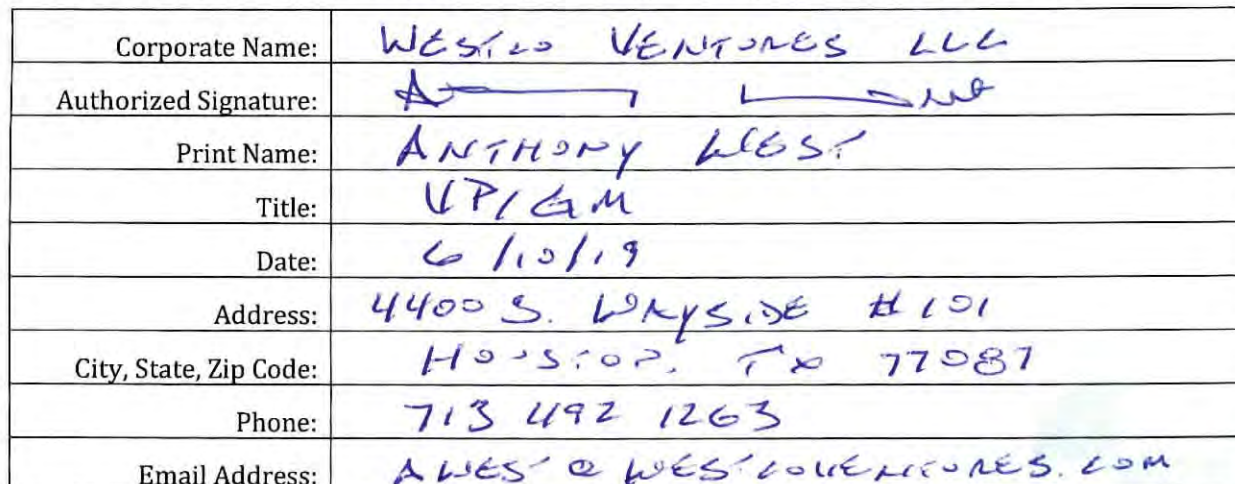 Corporate Name: WESTCO VENTURES LLC
Authorized Signature:
Print Name: ANTHONY WEST
Title: VP/GM
Date: 6/10/19
Address: 4400 S. WAYSIDE #101
City, State, Zip Code: HOUSTON, TX 77087
Phone: 713 492 1263
Email Address: AWEST@WESTCOVENTURES.COM